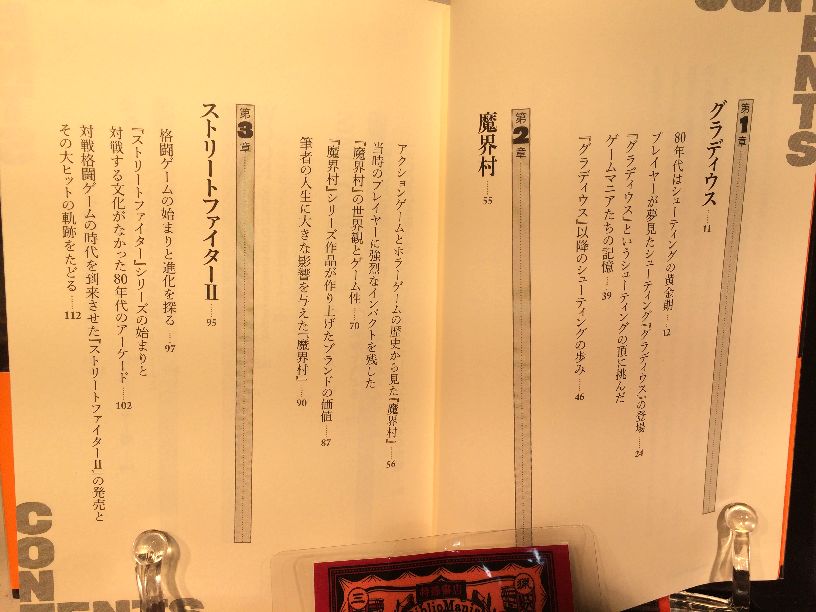 CONTENTS
第1章
グラディウス……11
80年代はシューティングの黄金期……12
プレイヤーが夢見たシューティング『グラディウス』の登場……24
『グラディウス』というシューティングの頂に挑んだ
ゲームマニアたちの記憶……39
『グラディウス』以降のシューティングの歩み……46
第2章
魔界村……55
アクションゲームとホラーゲームの歴史から見た『魔界村』……56
当時のプレイヤーに強烈なインパクトを残した
『魔界村』の世界観とゲーム性……70
『魔界村』シリーズ作品が作り上げたブランドの価値……87
筆者の人生に大きな影響を与えた『魔界村』……90
第3章
ストリートファイターII……95
格闘ゲームの始まりと進化を探る……97
『ストリートファイター』シリーズの始まりと
対戦する文化がなかった80年代のアーケード……102
対戦格闘ゲームの時代を到来させた『ストリートファイターII』の発売と
その大ヒットの軌跡をたどる……112
CONTENTS